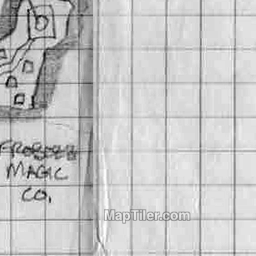 FROBOZZ
MAGIC
CO.
MapTiler.com